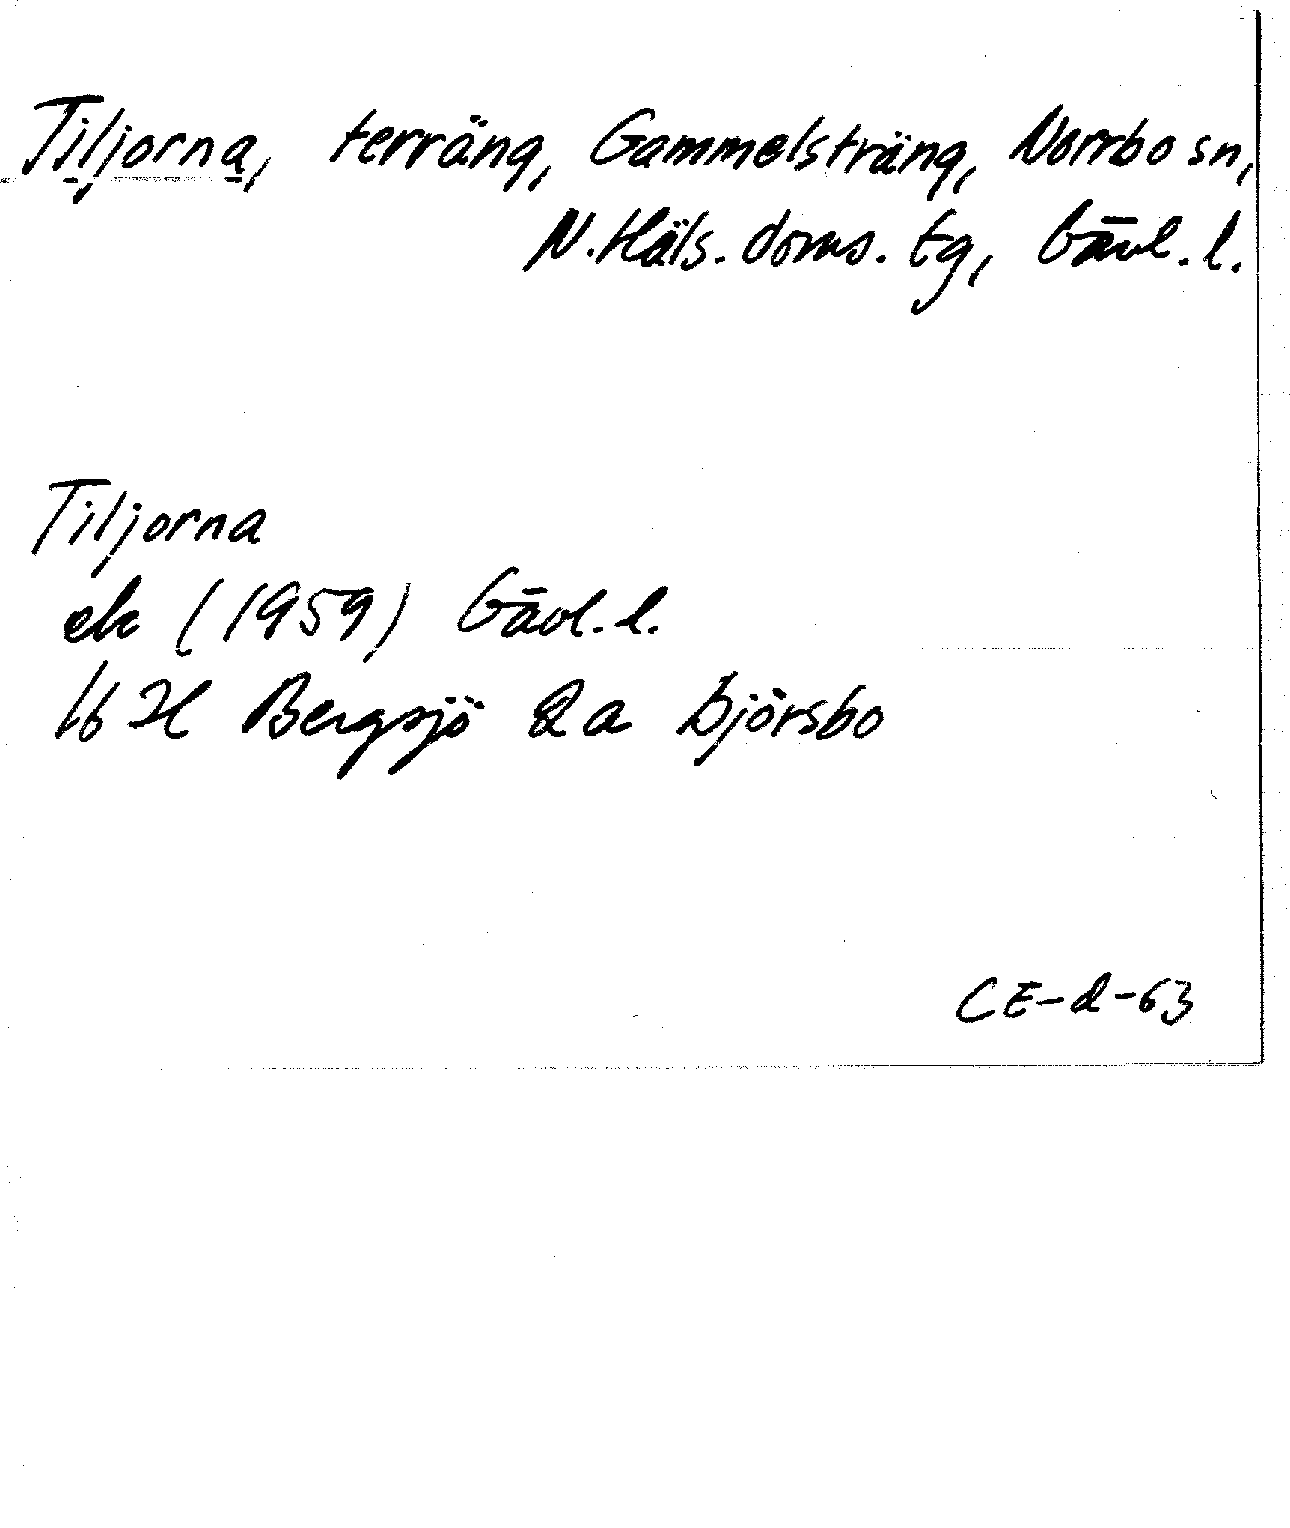 Tiljorna, terräng, Gammelsträng, Norrbo sn,
N. Häls. doms. tg, Gävl. l.
Tiljorna
ek (1959) Gävl. l.
16 H Bergsjö 2a Björsbo
CE-d-63